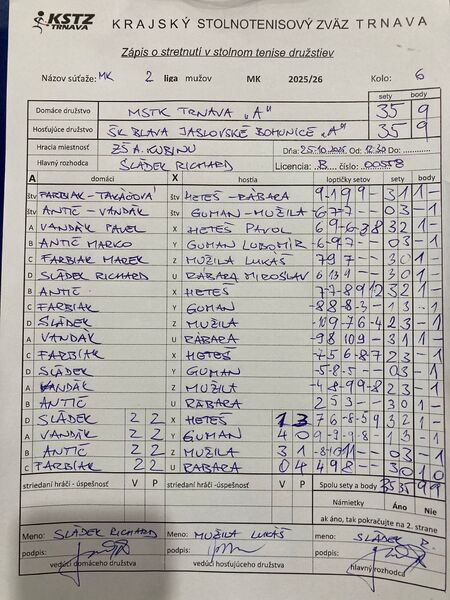 KSTZ
TRNAVA
KRAJSKÝ STOLNOTENISOVÝ ZVÄZ TRNAVA
Zápis o stretnutí v stolnom tenise družstiev
Názov súťaže: MK 2 liga mužov MK 2025/26 Kolo: 6
sety body
Domáce družstvo MSTK TRNAVA "A" 35 9
Hosťujúce družstvo ŠK BLAVA JASLOVSKÉ BOHUNICE "A" 35 9
Hracia miestnosť ZŠ A. KUBINU Dňa: 25.10.2025 Od: 12.30 Do:
Hlavný rozhodca SLÁDEK RICHARD Licencia: B číslo: 00558
A domáci X hostia loptičky setov sety body
štv FARBIAK - TAKÁČOVÁ štv HETEŠ - RÁBARA 9 -1 9 9 - 3 1 1 -
štv ANTIČ - VANDÁK štv GUMAN - MUŽILA -6 7 -7 - 0 3 - 1
A VANDÁK PAVEL X HETEŠ PAVOL 3 2 1 -
B ANTIČ MARKO Y GUMAN ĽUBOMÍR -6 -9 7 - 0 3 - 1
C FARBIAK MAREK Z MUŽILA LUKÁŠ 7 9 7 - 3 0 1 -
D SLÁDEK RICHARD U RÁBARA MIROSLAV 3 0 1 -
B ANTIČ X HETEŠ 3 2 1 -
C FARBIAK Y GUMAN -8 8 8 -3 - 1 3 - 1
D SLÁDEK Z MUŽILA -10 9 -7 6 -4 2 3 - 1
A VANDÁK U RÁBARA -9 8 10 9 3 1 1 -
C FARBIAK X HETEŠ 2 3 - 1
D SLÁDEK Y GUMAN -5 -8 -5 - 0 3 - 1
A VANDÁK Z MUŽILA -4 8 -9 9 -8 2 3 - 1
B ANTIČ U RÁBARA 2 5 3 - 3 0 1 -
D SLÁDEK 2 2 X HETEŠ 1 3 7 6 -8 -5 9 3 2 1 -
A VANDÁK 2 2 Y GUMAN 4 0 1 3 - 1
B ANTIČ 2 2 Z MUŽILA 3 1 0 3 - 1
C FARBIAK 2 2 U RÁBARA 0 4 4 9 8 - 3 0 1 0
striedaní hráči - úspešnosť V P striedaní hráči - úspešnosť V P Spolu sety a body 35 35 9 9
Námietky Áno Nie
ak áno, tak pokračujte na 2. strane
Meno: SLÁDEK RICHARD Meno: MUŽILA LUKÁŠ meno: SLÁDEK R.
podpis: podpis: podpis:
vedúci domáceho družstva vedúci hosťujúceho družstva hlavný rozhodca